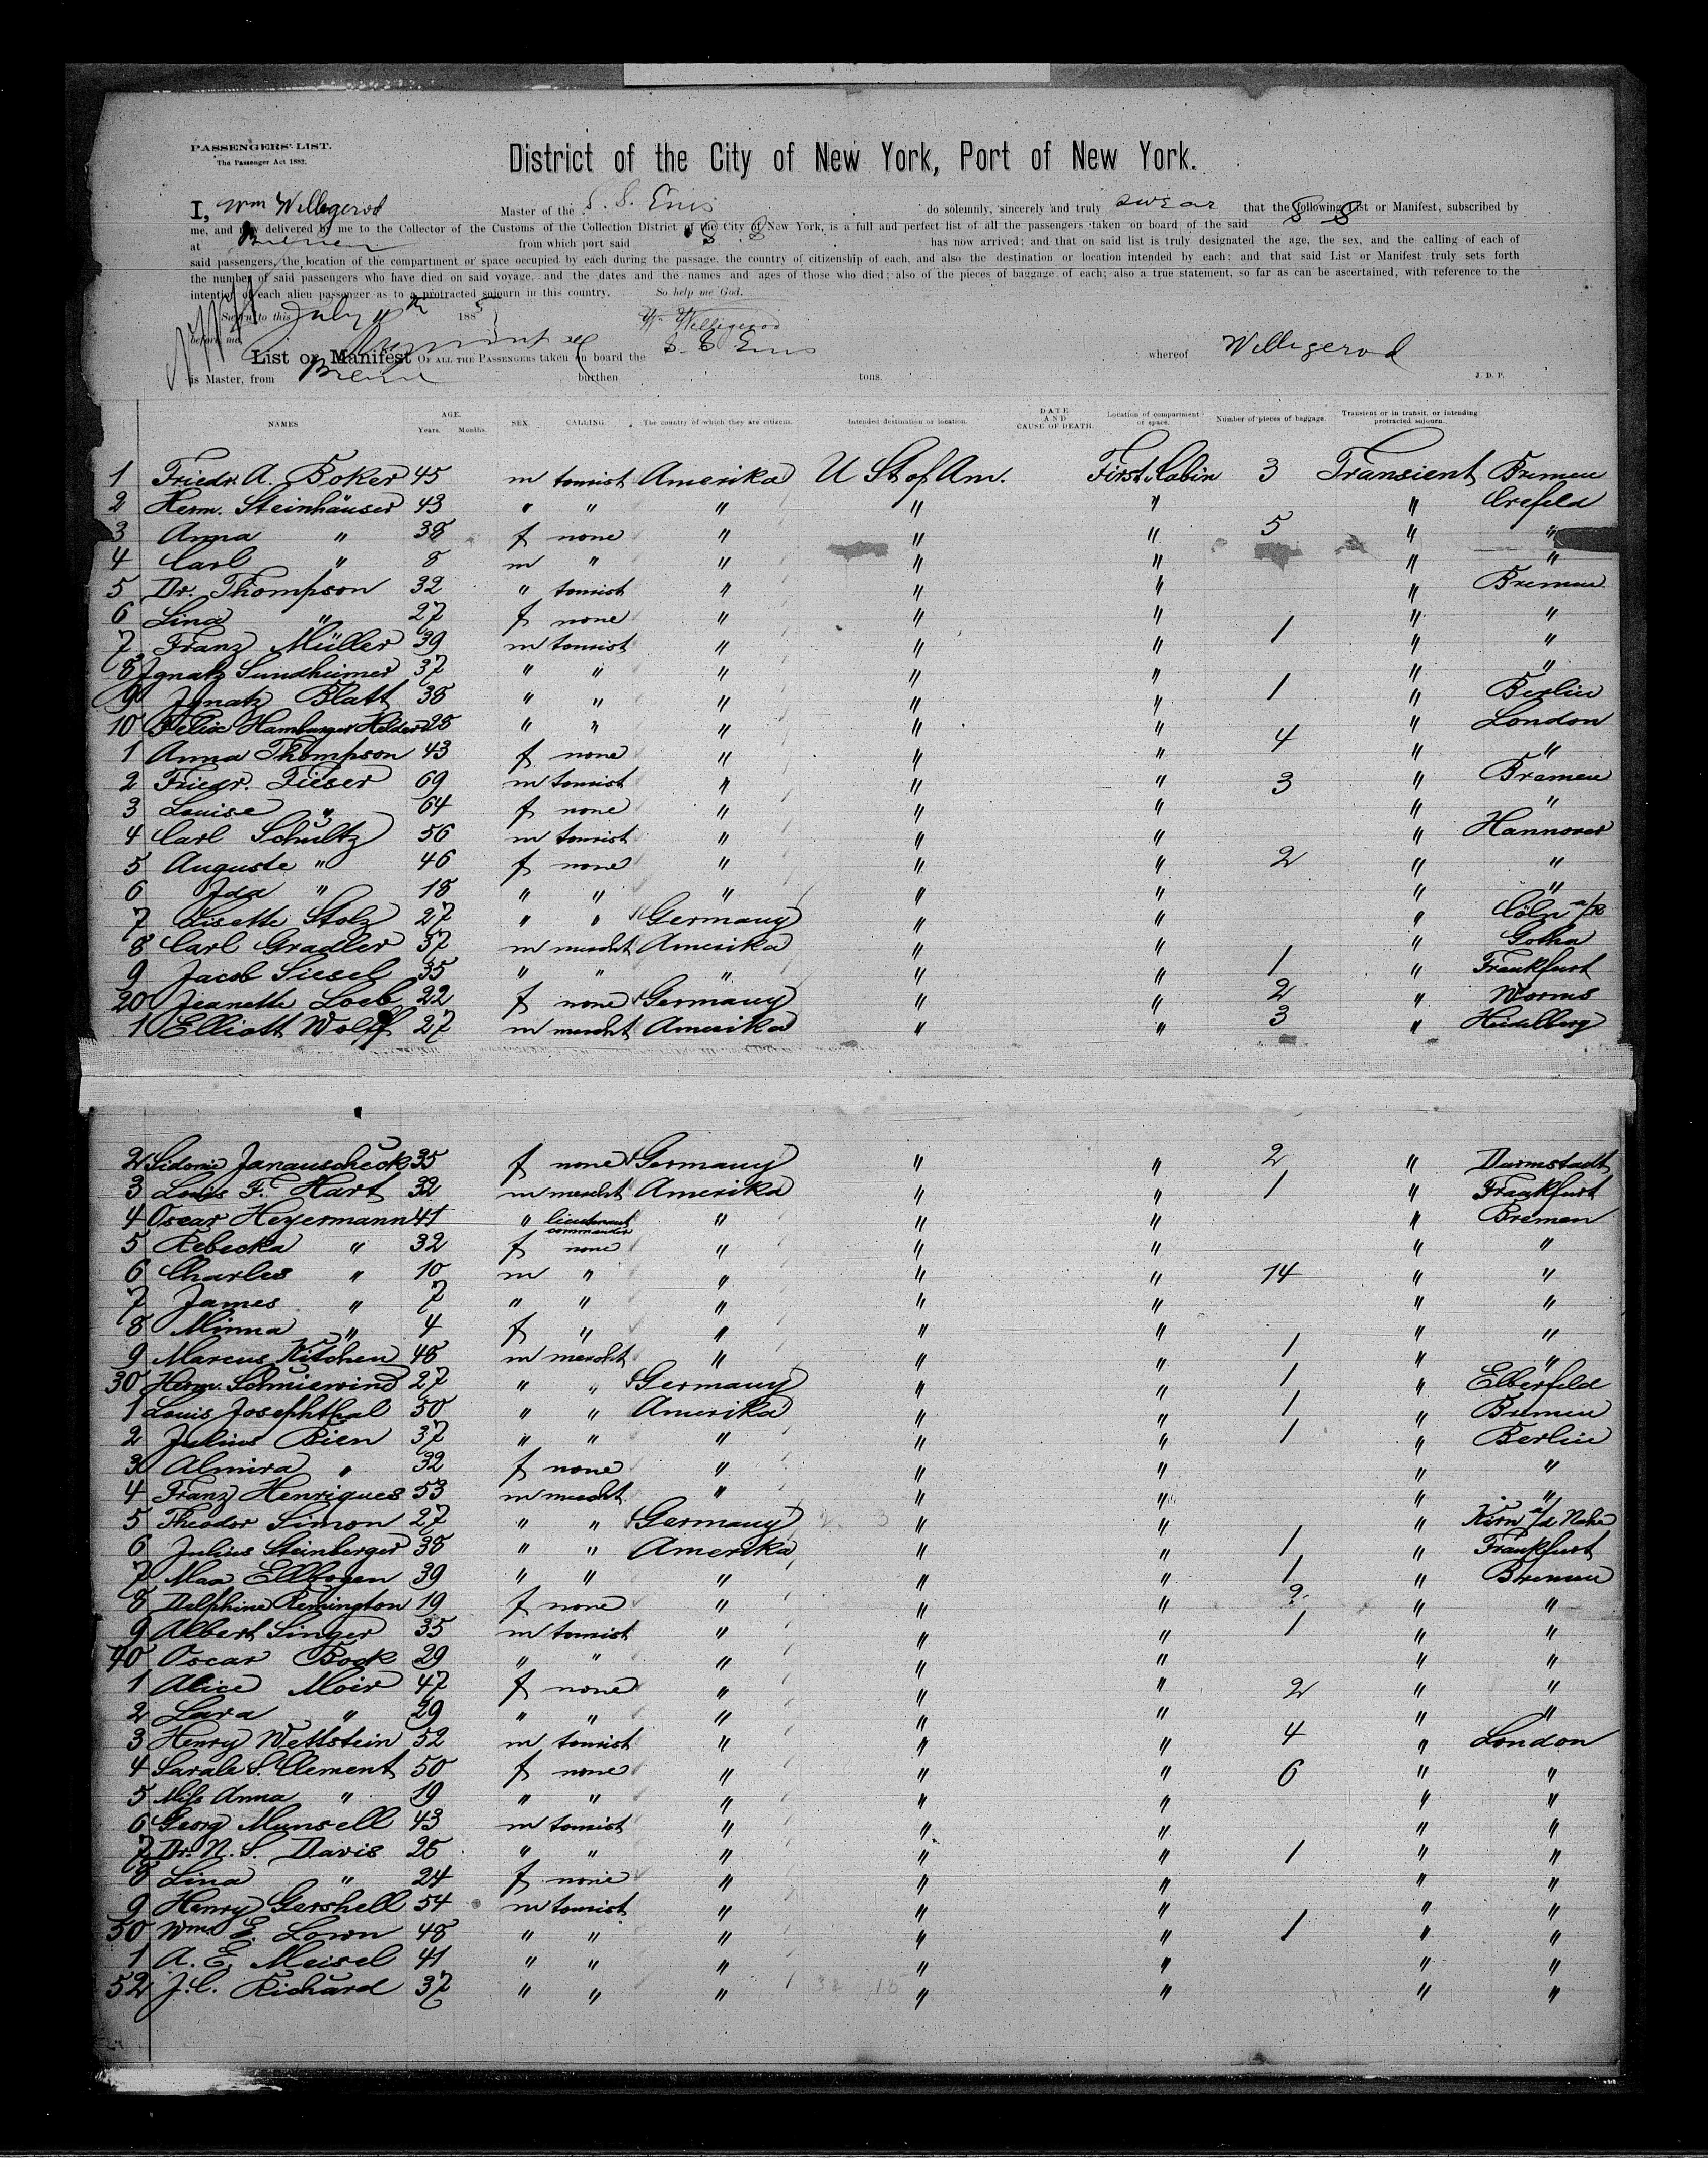 PASSENGERS' LIST.
The Passenger Act 1882.
District of the City of New York, Port of New York.
I, Wm Willigerod Master of the S. S. Ems do solemnly, sincerely and truly swear that the following List or Manifest, subscribed by
me, and now delivered by me to the Collector of the Customs of the Collection District of the City of New York, is a full and perfect list of all the passengers taken on board of the said S S
at Bremen from which port said S. S. has now arrived; and that on said list is truly designated the age, the sex, and the calling of each of
said passengers, the location of the compartment or space occupied by each during the passage, the country of citizenship of each, and also the destination or location intended by each; and that said List or Manifest truly sets forth
the number of said passengers who have died on said voyage, and the dates and the names and ages of those who died; also of the pieces of baggage of each; also a true statement, so far as can be ascertained, with reference to the
intention of each alien passenger as to a protracted sojourn in this country. So help me God.
Sworn to this July 11th 1885 W. Willigerod
before me
List or Manifest OF ALL THE PASSENGERS taken on board the S. S. Ems whereof Willigerod
is Master, from Bremen burthen tons. J. D. P.
NAMES AGE. Years. Months. SEX. CALLING. The country of which they are citizens. Intended destination or location. DATE AND CAUSE OF DEATH. Location of compartment or space. Number of pieces of baggage. Transient or in transit, or intending protracted sojourn.
1 Friedr. A. Boker 45 m tourist Amerika U St of Am. First Cabin 3 Transient Bremen
2 Herm. Steinhäuser 43 " " " " " " Crefeld
3 Anna " 38 f none " " " 5 " "
4 Carl " 8 m " " " " " "
5 Dr. Thompson 32 " tourist " " " " Bremen
6 Lina " 27 f none " " " " "
7 Franz Müller 39 m tourist " " " 1 " "
8 Ignatz Sundheimer 37 " " " " " " "
9 Ignatz Blatt 38 " " " " " 1 " Berlin
10 Felix Hamburger 25 " " " " " " London
1 Anna Thompson 43 f none " " " 4 " "
2 Friedr. Fieser 69 m tourist " " " 3 " Bremen
3 Louise " 64 f none " " " " "
4 Carl Schultz 56 m tourist " " " " Hannover
5 Auguste " 46 f none " " " 2 " "
6 Ida " 18 " " " " " " "
7 Lisette Stolz 27 " " Germany " " " Cöln a/R
8 Carl Gradler 37 m mercht Amerika " " " Gotha
9 Jacob Siesel 35 " " " " " 1 " Frankfurt
20 Jeanette Loeb 22 f none Germany " " 2 " Worms
1 Elliott Wolff 27 m mercht Amerika " " 3 " Heidelberg
2 Sidonie Janauscheck 35 f none Germany " " 2 " Darmstadt
3 Louis F. Hart 32 m mercht Amerika " " 1 " Frankfurt
4 Oscar Heyermann 41 " lieutenant commander " " " " Bremen
5 Rebecka " 32 f none " " " " "
6 Charles " 10 m " " " " 14 " "
7 James " 7 " " " " " " "
8 Minna " 4 f " " " " " "
9 Marcus Kitchen 48 m mercht " " " 1 " "
30 Herm. Schniewind 27 " " Germany " " 1 " Elberfeld
1 Louis Josephthal 50 " " Amerika " " 1 " Bremen
2 Julius Bien 37 " " " " " 1 " Berlin
3 Almira " 32 f none " " " " "
4 Franz Henriques 53 m mercht " " " " "
5 Theodor Simon 27 " " Germany " " " Kirn a/d. Nahe
6 Julius Steinberger 38 " " Amerika " " 1 " Frankfurt
7 Max Ellbogen 39 " " " " " 1 " Bremen
8 Delphine Remington 19 f none " " " 2 " "
9 Albert Singer 35 m tourist " " " 1 " "
40 Oscar Bock 29 " " " " " " "
1 Alice Moir 47 f none " " " 2 " "
2 Lara " 29 " " " " " " "
3 Henry Wettstein 52 m tourist " " " 4 " London
4 Sarah S. Clement 50 f none " " " 6 " "
5 Miss Anna " 19 " " " " " " "
6 Georg Munsell 43 m tourist " " " " "
7 Dr. N. S. Davis 25 " " " " " 1 " "
8 Lina " 24 f none " " " " "
9 Henry Gershell 54 m tourist " " " " "
50 Wm. E. Lown 48 " " " " " 1 " "
1 A. E. Meisel 41 " " " " " " "
52 J. C. Richard 37 " " " " " " "